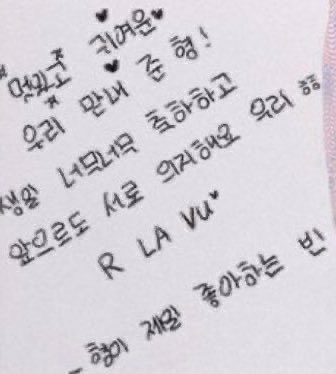 멋지고 귀여운
우리 맏내 준 형!
생일 너무너무 축하하고
앞으로도 서로 의지해요 우리 ㅎㅎ
R LA VU
_ 형이 제일 좋아하는 빈